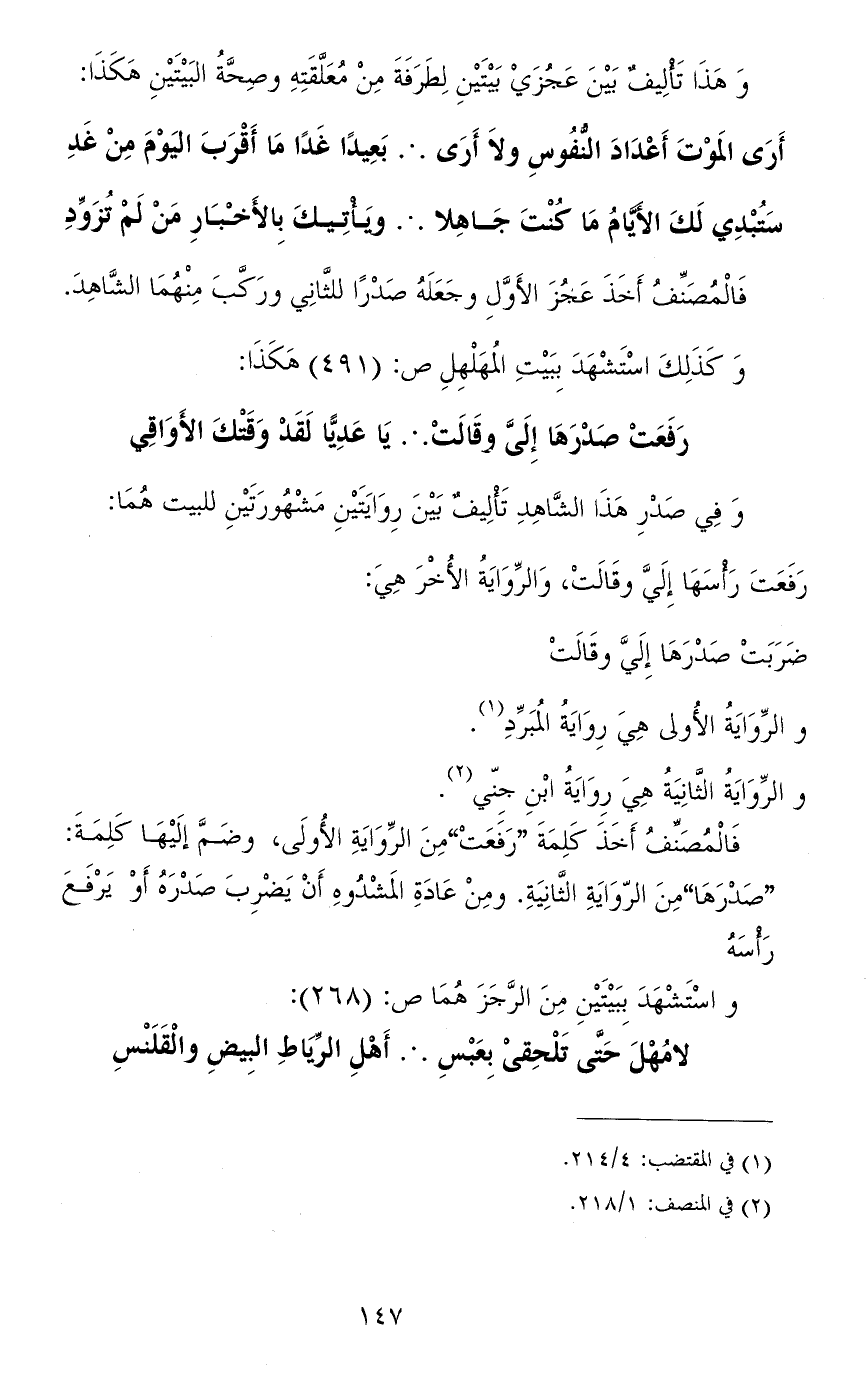 وَ هَذَا تَأْلِيفٌ بَيْنَ عَجُزَيْ بَيْتَيْنِ لِطَرَفَةَ مِنْ مُعَلَّقَتِهِ وصِحَّةُ البَيْتَيْنِ هَكَذَا:
أَرَى المَوْتَ أَعْدَادَ النُّفُوسِ ولاَ أَرَى .∙. بَعِيدًا غَدًا مَا أَقْرَبَ اليَوْمَ مِنْ غَدِ
سَتُبْدِي لَكَ الأَيَّامُ مَا كُنْتَ جَــاهِلا .∙. ويَـأْتِـيـكَ بِالأَخْبَـارِ مَنْ لَمْ تُزَوِّدِ
فَالْمُصَنِّفُ أَخَذَ عَجُزَ الأَوَّلِ وجَعَلَهُ صَدْرًا للثَّانِي ورَكَّبَ مِنْهُمَا الشَّاهِدَ.
وَ كَذَلِكَ اسْتَشْهَدَ بِبَيْتِ المُهَلْهِلِ ص: (٤٩١) هَكَذَا:
رَفَعَتْ صَدْرَهَا إِلَىَّ وقَالَتْ.∙. يَا عَدِيًّا لَقَدْ وَقَتْكَ الأَوَاقِي
وَ فِي صَدْرِ هَذَا الشَّاهِدِ تَأْلِيفٌ بَيْنَ رِوَايَتَيْنِ مَشْهُورَتَيْنِ للبيت هُمَا:
رَفَعَتَ رَأْسَهَا إِلَيَّ وقَالَتْ، وَالرِّوَايَةُ الأُخْرَ هِيَ:
ضَرَبَتْ صَدْرَهَا إِلَيَّ وقَالَتْ
و الرِّوَايَةُ الأُولى هِيَ رِوَايَةُ المُبَرِّدِ(١).
و الرِّوَايَةُ الثَّانِيَةُ هِيَ رِوَايَةُ ابْنِ جِنّي(٢).
فَالْمُصَنِّفُ أَخَذَ كَلِمَةَ ”رَفَعَتْ“مِنَ الرِّوَايَةِ الأُولَى، وضَــمَّ إِلَيْهَـا كَلِمَـةَ:
”صَدْرَهَا“مِنَ الرّوَايَةِ الثَّانِيَةِ. ومِنْ عَادَةِ المَشْدُوهِ أَنْ يَضْرِبَ صَدْرَهُ أَوْ يَرْفَـعَ
رَأْسَهُ
و اسْتَشْهَدَ بِبَيْتَيْنِ مِنَ الرَّجَزَ هُمَا ص: (٢٦٨):
لامُهْلَ حَتَّى تَلْحِقىْ بِعَبْسِ .∙. أَهْلِ الرِّيَاطِ البِيضِ والْقَلَنْسِ
(١) في المقتضب: ٢١٤/٤.
(٢) في المنصف: ٢١٨/١.
١٤٧